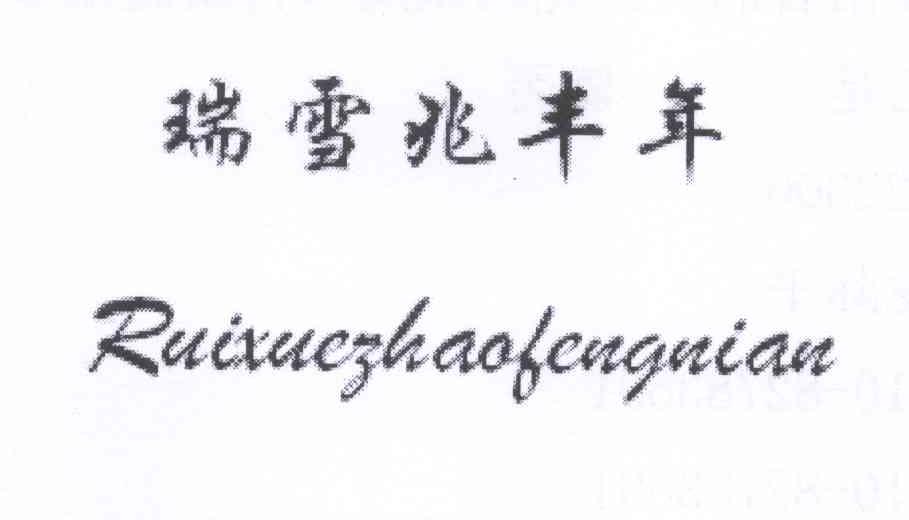 瑞雪兆丰年
Ruixuezhaofengnian